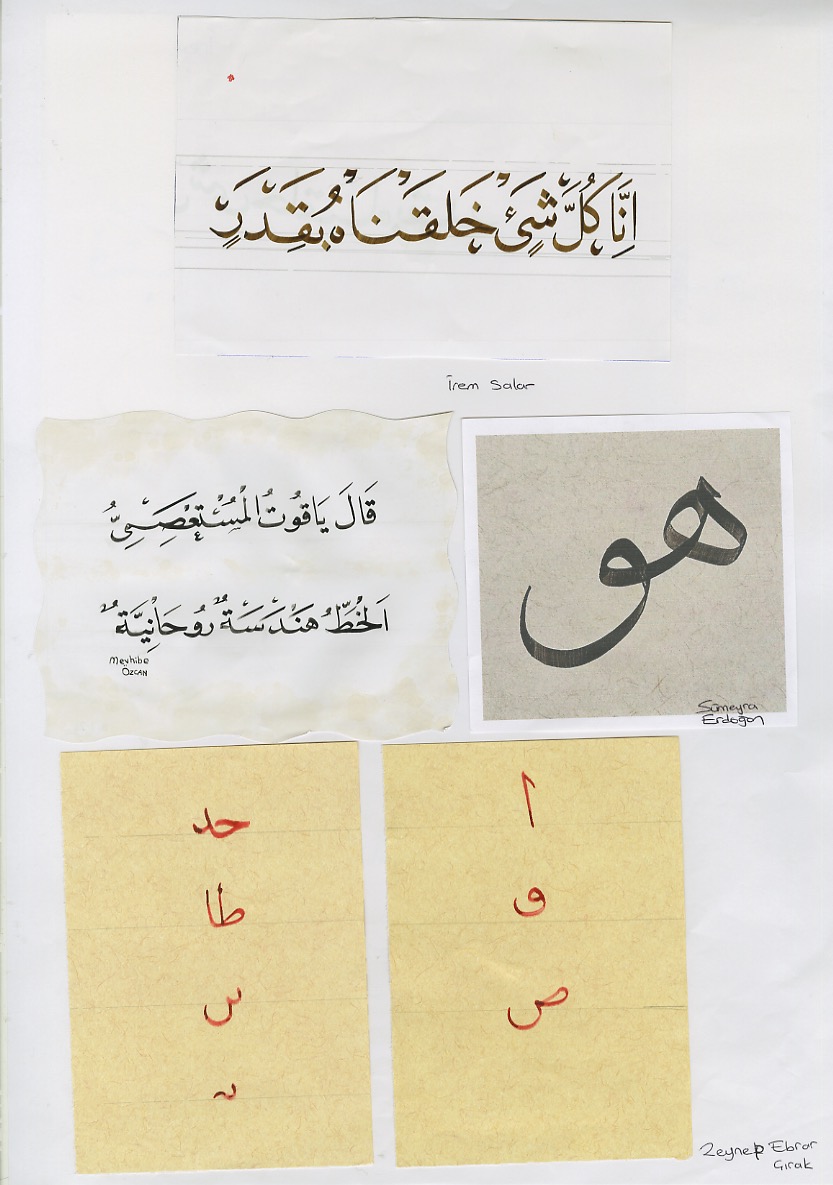 اِنَّا كُلَّ شَیْءٍ خَلَقْنَاهُ بِقَدَرٍ
İrem Salar
قَالَ يَاقُوتُ الْمُسْتَعْصِمِىُّ
اَلْخَطُّ هَنْدَسَةٌ رُوحَانِيَّةٌ
Mevhibe
ÖZCAN
هو
Sümeyra
Erdoğan
حد
طا
س
ا
و
ص
Zeynep Ebrar
Gırak